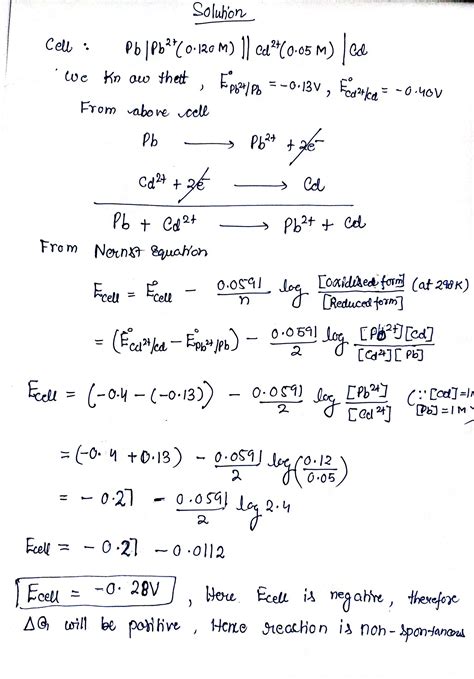 Solution
Cell : Pb|Pb²⁺(0.120M) || Cd²⁺(0.05M) | Cd
We Know that, E°Pb²⁺/Pb = -0.13V, E°Cd²⁺/Cd = -0.40V
From above cell
Pb ⟶ Pb²⁺ + 2e⁻
Cd²⁺ + 2e⁻ ⟶ Cd
Pb + Cd²⁺ ⟶ Pb²⁺ + Cd
From Nernst Equation
Ecell = E°cell - 0.0591/n log [oxidised form]/[Reduced form] (at 298K)
= (E°Cd²⁺/Cd - E°Pb²⁺/Pb) - 0.0591/2 log [Pb²⁺][Cd]/[Cd²⁺][Pb]
Ecell = (-0.4 - (-0.13)) - 0.0591/2 log [Pb²⁺]/[Cd²⁺] (∵ [Cd] = 1M [Pb] = 1M
= (-0.4 + 0.13) - 0.0591/2 log (0.12/0.05)
= -0.27 - 0.0591/2 log 2.4
Ecell = -0.27 - 0.0112
Ecell = -0.28V , Here Ecell is negative, therefore
ΔG will be positive, Hence reaction is non-spontaneous